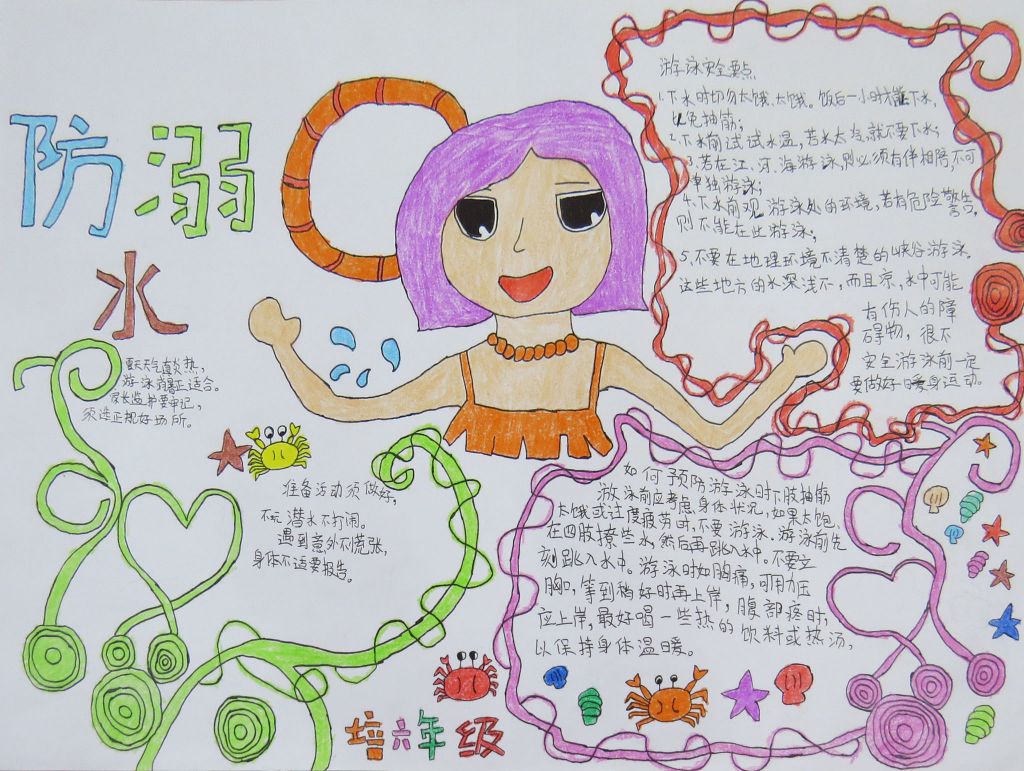 防溺
水
夏天天气真炎热,
游泳消暑正适合。
家长监护要牢记,
须选正规好场所。
准备活动须做好,
不玩潜水不打闹。
遇到意外不慌张,
身体不适要报告。
游泳安全要点
1.下水时切勿太饿、太饿。饭后一小时才能下水,
以免抽筋;
2.下水前试试水温,若水太冷,就不要下水;
3.若在江、河、海游泳,则必须有伴相陪,不可
单独游泳;
4.下水前观 游泳处的环境,若有危险警告,
则不能在此游泳;
5.不要在地理环境不清楚的峡谷游泳。
这些地方的水深浅不,而且凉,水中可能
有伤人的障
碍物,很不
安全游泳前一定
要做好暖身运动。
如何预防游泳时下肢抽筋
游泳前应考虑身体状况,如果太饱、
太饿或过度疲劳时,不要游泳。游泳前先
在四肢撩些水,然后再跳入水中。不要立
刻跳入水中。游泳时如胸痛,可用力压
胸口,等到稍好时再上岸,腹部疼时,
应上岸,最好喝一些热的饮料或热汤,
以保持身体温暖。
培六年级